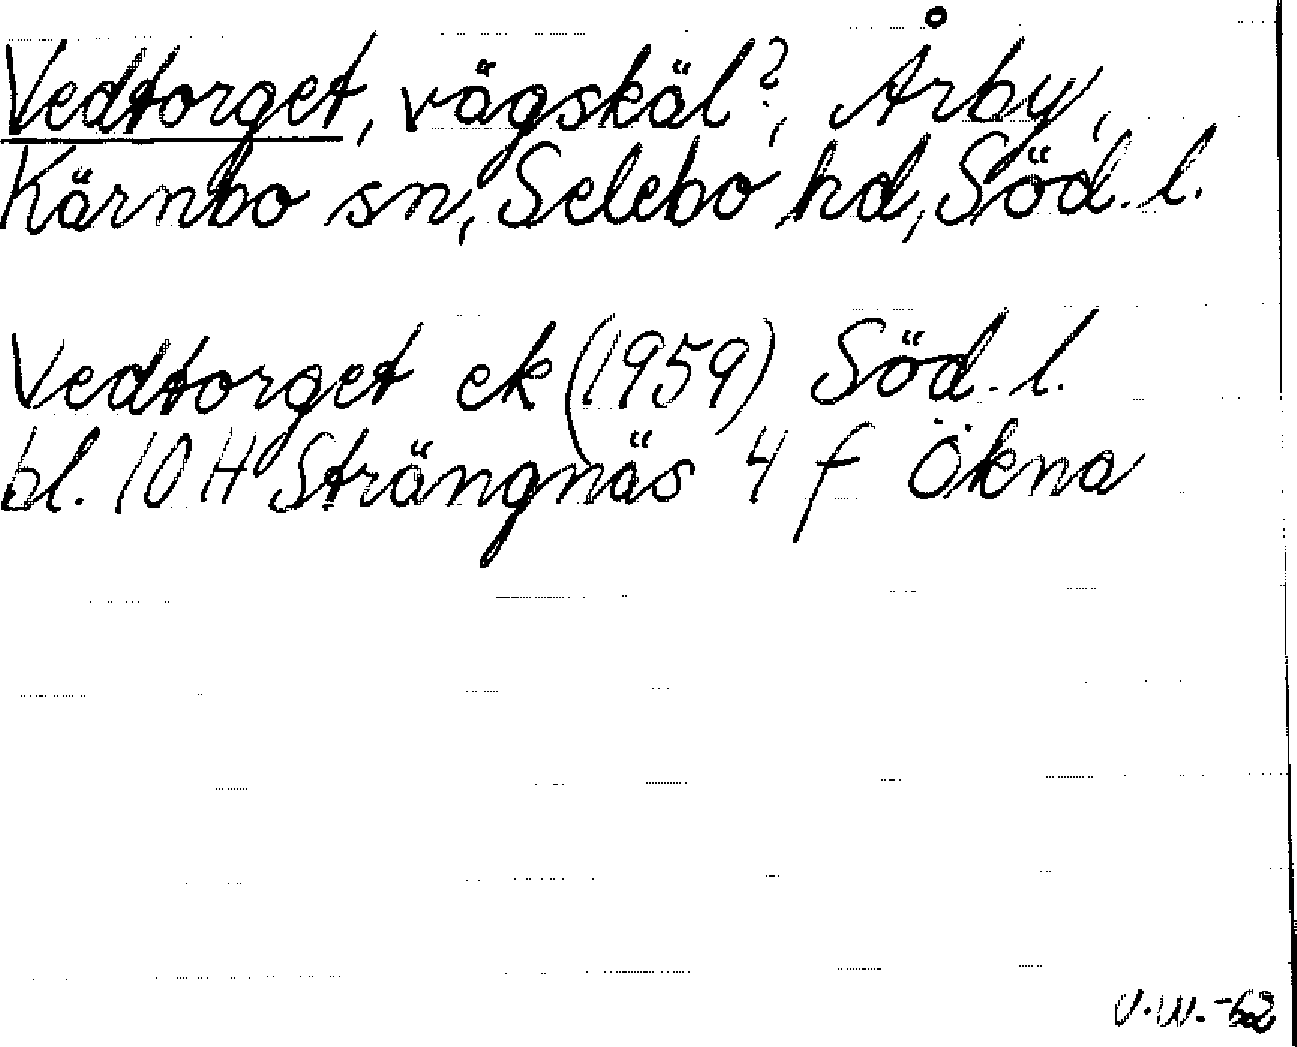 Vedtorget, vägskäl?, Årby,
Kärnbo sn, Selebo hd, Söd. l.
Vedtorget ek (1959) Söd. l.
bl. 10 H Strängnäs 4 f Ökna
V.W.-62